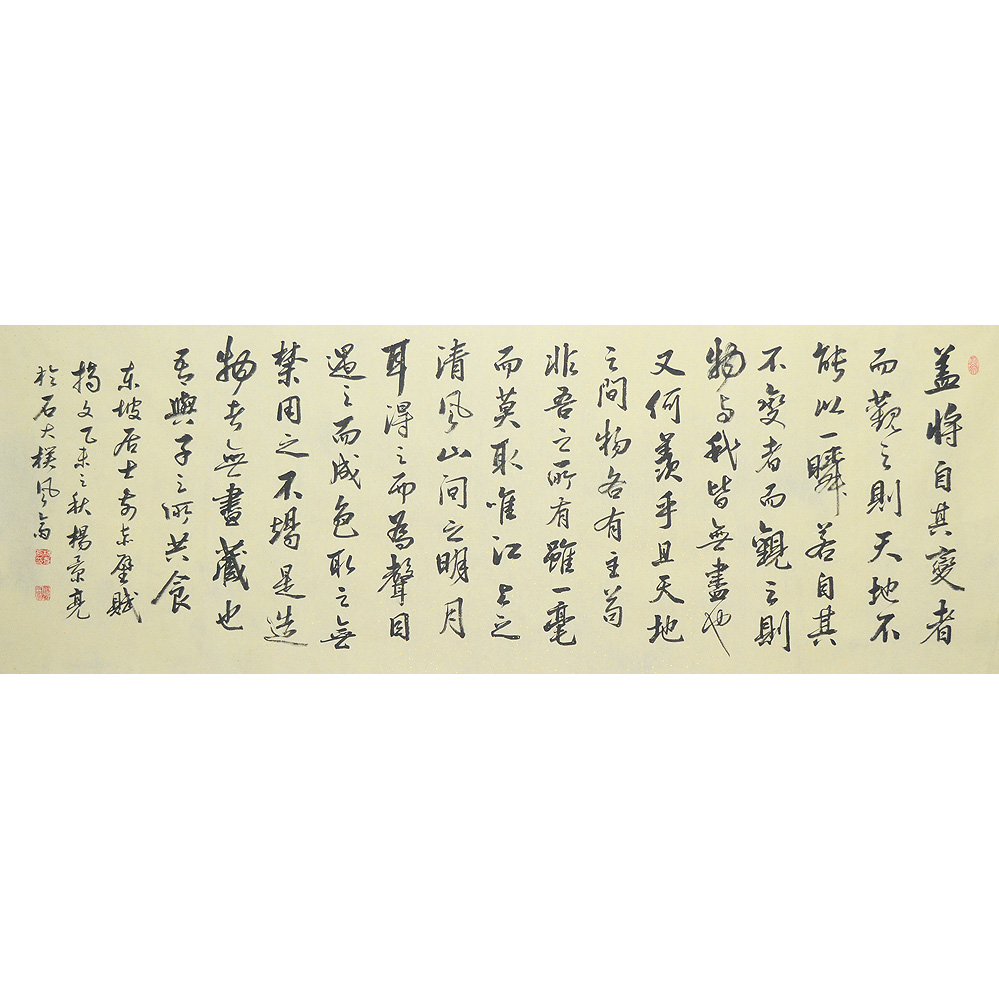 盖將自其變者
而觀之則天地不
能以一瞬若自其
不變者而觀之則
物與我皆無盡也
又何羨乎且天地
之間物各有主苟
非吾之所有雖一毫
而莫取唯江上之
清风山间之明月
耳得之而為聲目
遇之而成色取之無
禁用之不竭是造
物者無盡藏也
吾與子之所共食
东坡居士前赤壁賦
摘文乙未之秋楊景亮
於石大樸风斋